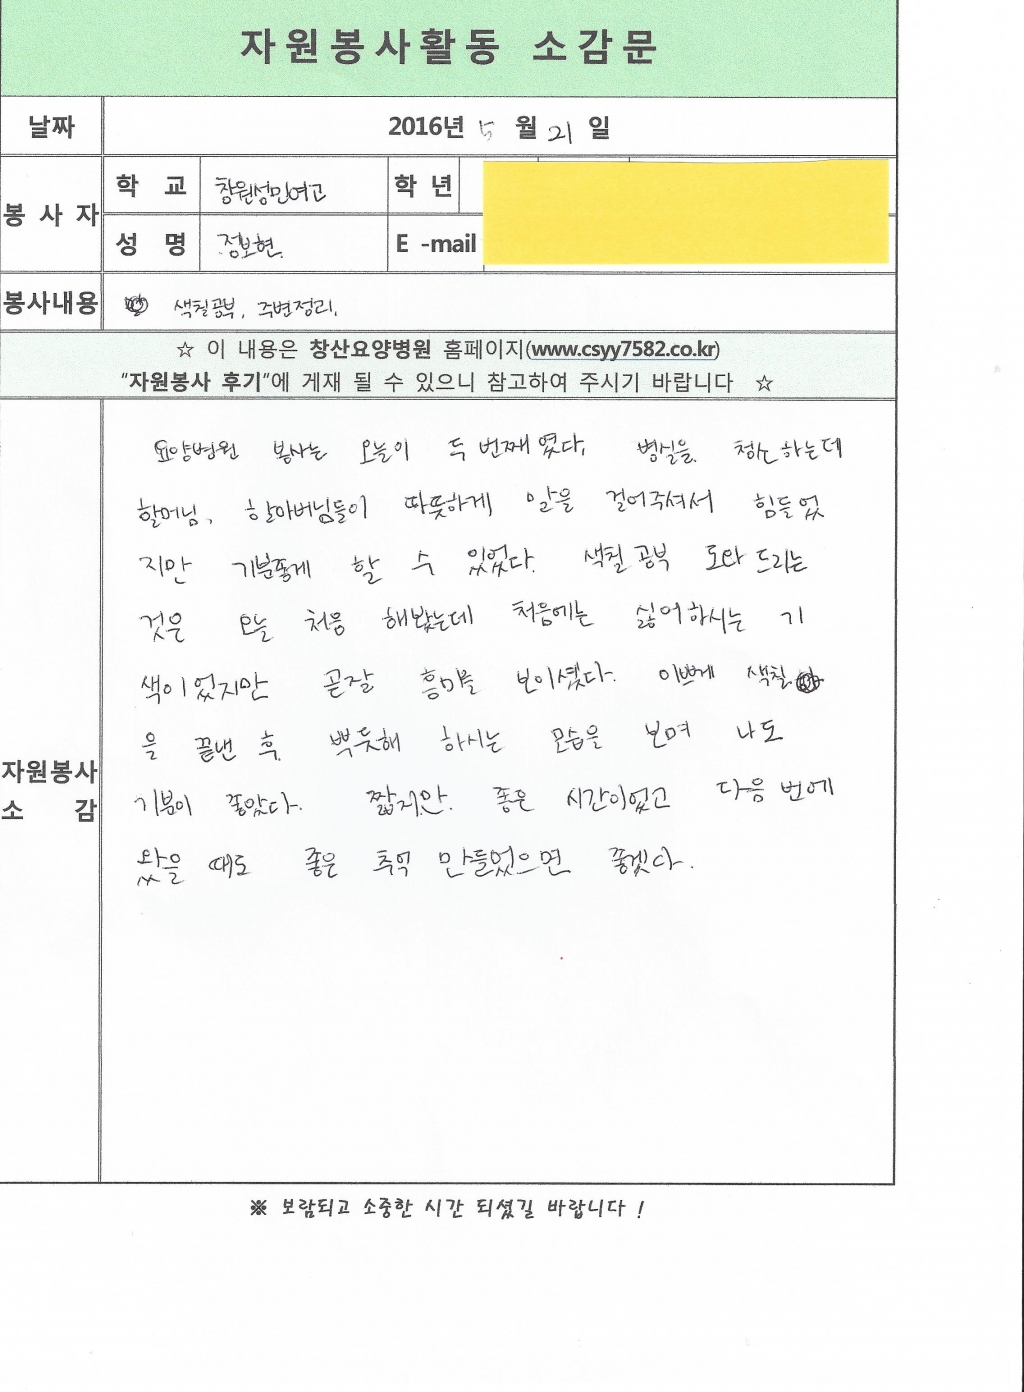 자원봉사활동 소감문
날짜 2016년 5 월 21 일
봉 사 자
학 교 창원성민여고 학 년
성 명 정보현. E -mail
봉사내용 색칠공부, 주변정리.
☆ 이 내용은 창산요양병원 홈페이지(www.csyy7582.co.kr)
"자원봉사 후기"에 게재 될 수 있으니 참고하여 주시기 바랍니다 ☆
자원봉사
소 감
요양병원 봉사는 오늘이 두 번째였다. 병실을 청소하는데
할머님, 할아버님들이 따뜻하게 말을 걸어주셔서 힘들었
지만 기분좋게 할 수 있었다. 색칠공부 도와드리는
것은 오늘 처음 해봤는데 처음에는 싫어하시는 기
색이었지만 곧잘 흥미를 보이셨다. 이쁘게 색칠
을 끝낸 후 뿌듯해 하시는 모습을 보며 나도
기분이 좋았다. 짧지만. 좋은 시간이었고 다음번에
왔을 때도 좋은 추억 만들었으면 좋겠다.
※ 보람되고 소중한 시간 되셨길 바랍니다 !